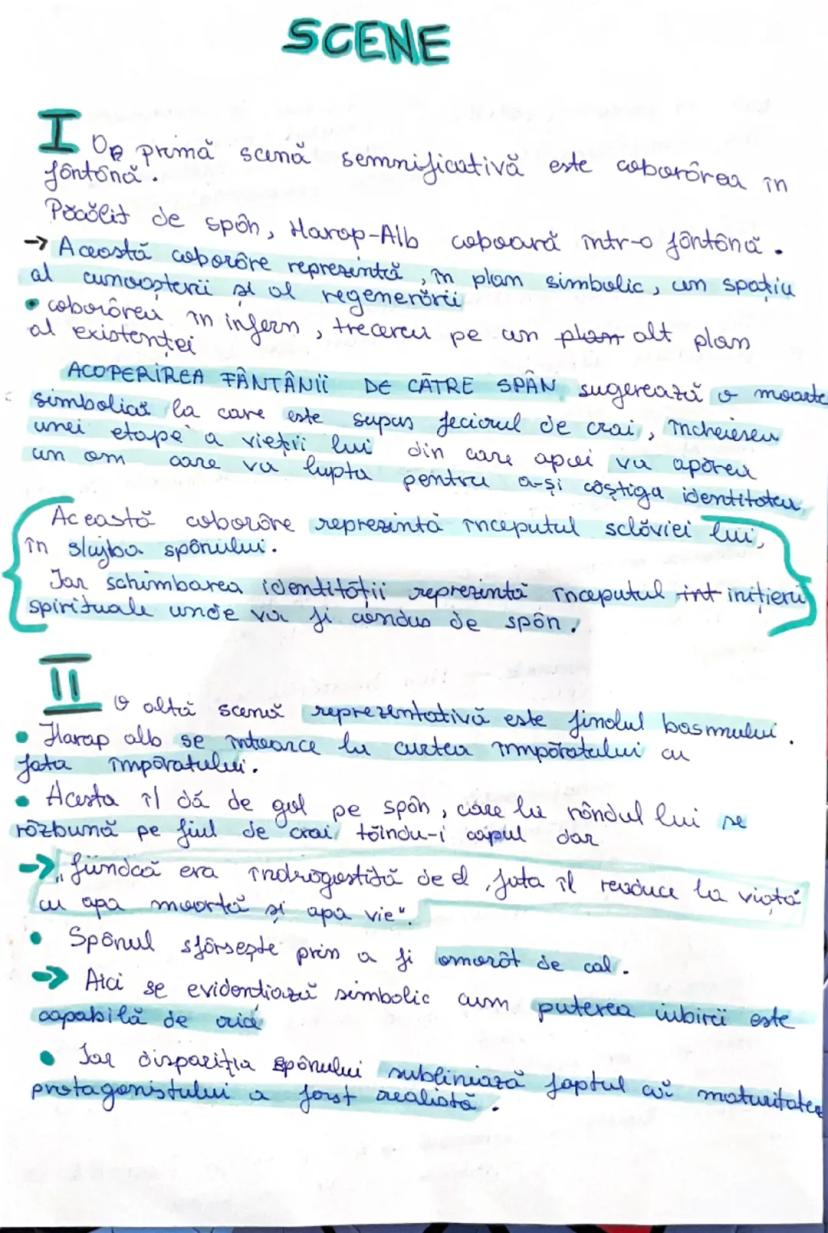 SCENE
I O primă scenă semnificativă este coborârea în
fântână.
Păcălit de spân, Harap-Alb coboară într-o fântână.
→ Această coborâre reprezintă, în plan simbolic, un spațiu
al cunoașterii și al regenerării
• coborârea în infern, trecerea pe un plan alt plan
al existenței
ACOPERIREA FÂNTÂNII DE CĂTRE SPÂN sugerează o moarte
simbolică la care este supus feciorul de crai, încheierea
unei etape a vieții lui din care apoi va apărea
un om care va lupta pentru a-și câștiga identitatea
Această coborâre reprezintă începutul sclăviei lui,
în slujba spânului.
Iar schimbarea identității reprezintă începutul int inițierii
spirituale unde va fi condus de spân.
II O altă scenă reprezentativă este finalul basmului.
• Harap alb se întoarce la curtea împăratului cu
fata împăratului.
• Acesta îl dă de gol pe spân, care la rândul lui se
răzbună pe fiul de crai, tăindu-i capul dar
→ „fiindcă era îndrăgostită de el, fata îl readuce la viață
cu apa moartă și apa vie".
• Spânul sfârsește prin a fi omorât de cal.
→ Aici se evidențiază simbolic cum puterea iubirii este
capabilă de
• Iar dispariția spânului subliniază faptul că maturitatea
protagonistului a forst realistă.